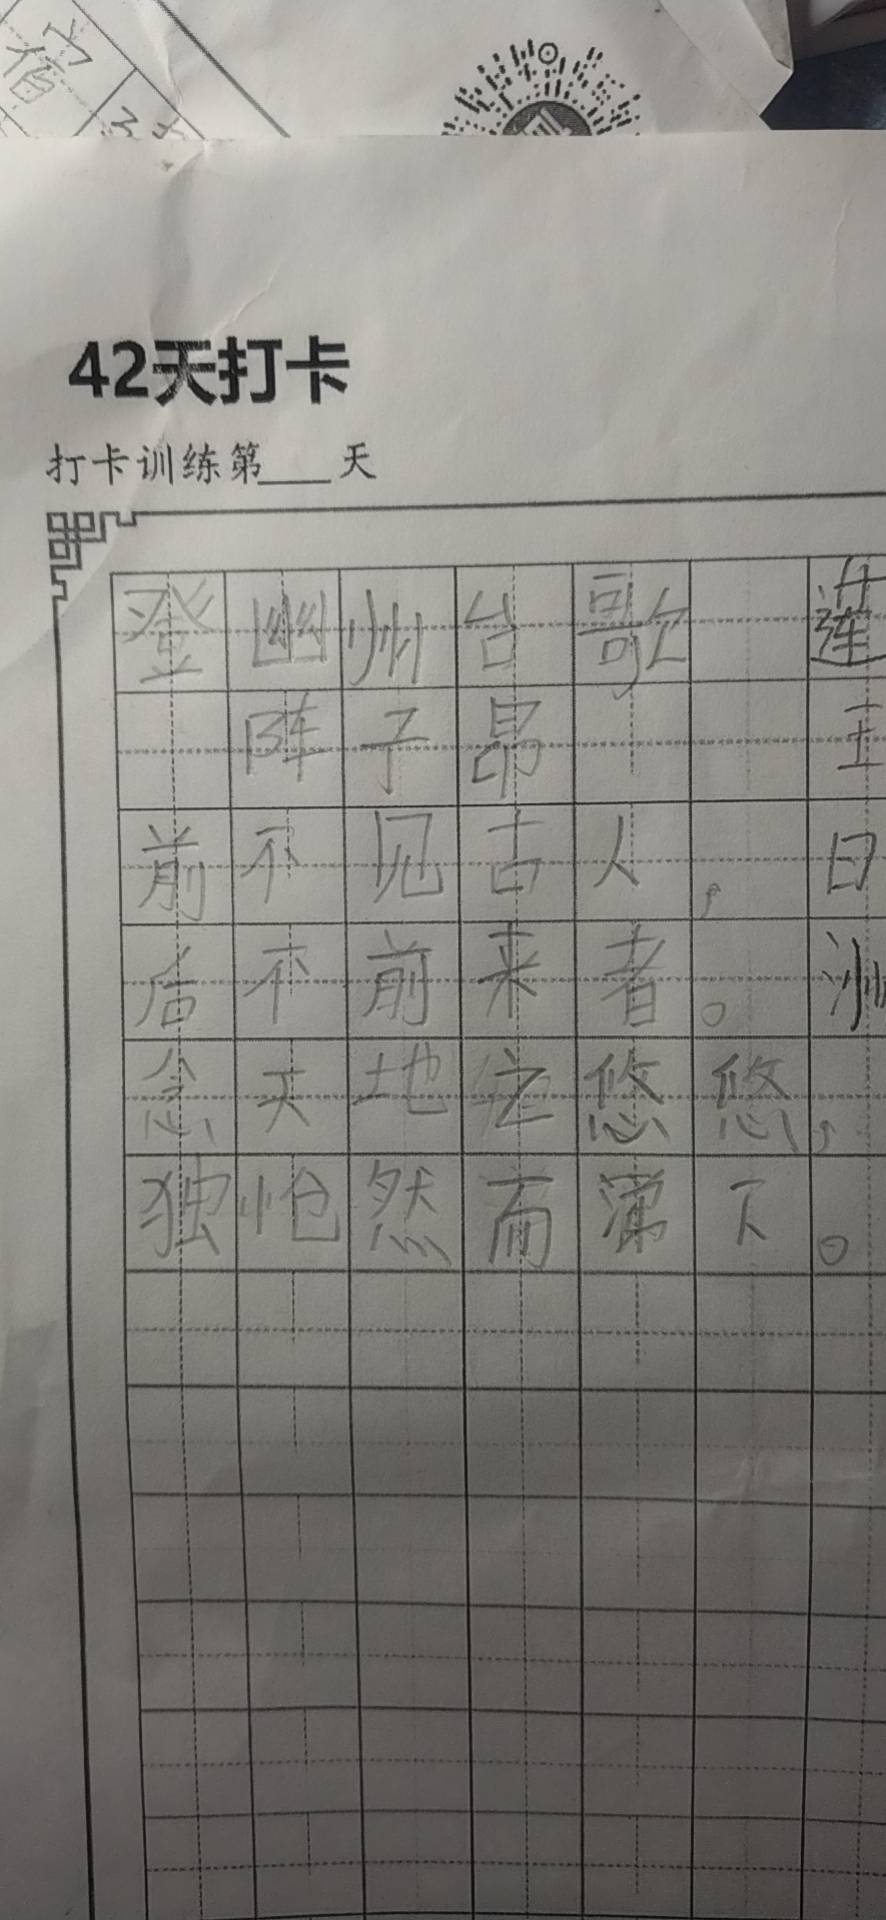 宿
42天打卡
打卡训练第___天
登幽州台歌 莲
阵子昂 王
前不见古人， 日
后不前来者。
念天地之悠悠，
独怆然而涕下。